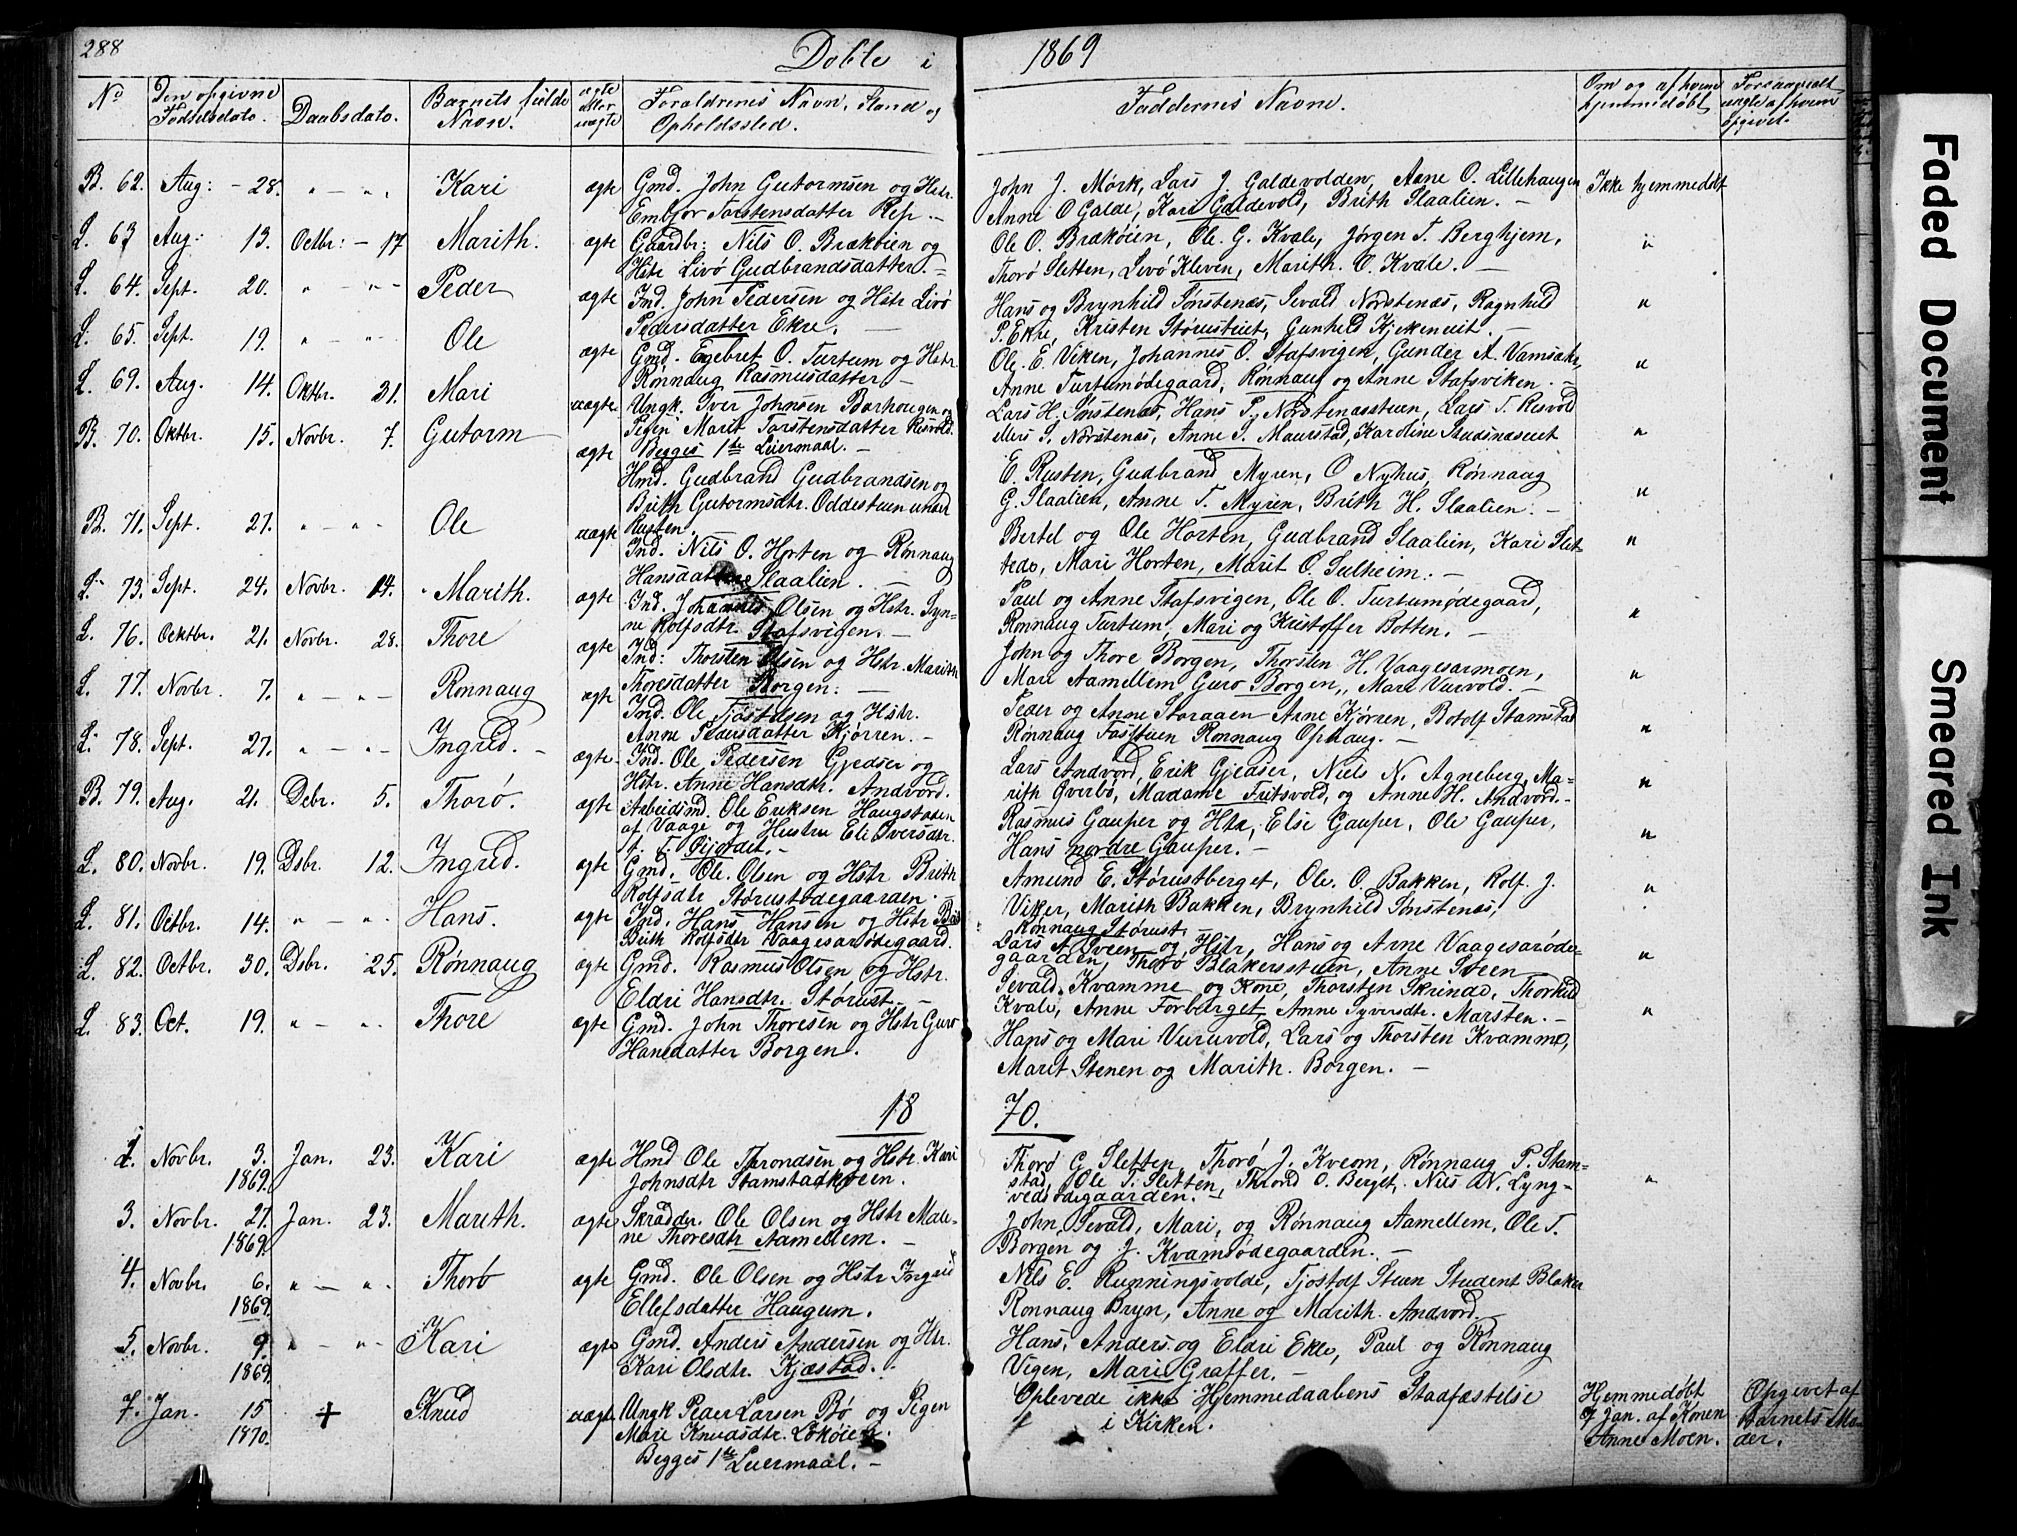 288
Døbte i 1869
No
Den opgivne Fødselsdato.
Daabsdato.
Barnets fulde Navn.
ægte eller uægte
Forældrenes Navn, Stand og Opholdssted.
Faddernes Navne.
Om og af hvem hjemmedøbt
Forsaavidt uægte af hvem opgivet.
B. 62. Aug: - 28. " - " Kari ægte Gmd. John Gutormsen og Hstr.
Embjør Torstensdatter Rep. -
John J. Mørk, Lars J. Galdevolden, Anne O. Lillehaugen Ikke hjemmedøbt
Anne O Galde, Kari Galdevold, Brith Slaalien. -
L. 63 Aug: 13. Octbr: - 17 Marith. ægte Gaardbr: Nils O. Brækøien og
Hstr Livø Gudbrandsdatter. -
Ole O. Brækøien, Ole. G. Kvale, Jørgen T. Berghjem, "
Thorø Sletten, Livø Kleven, Marith. O. Kvale. -
L. 64. Sept. 20. " - " Peder ægte Ind. John Pedersen og Hstr Livø
Pedersdatter Ekre. -
Hans og Brynhild Sørstenæs, Sevald Nordstenæs, Ragnhild "
P. Ekre, Kristen Størustuet, Gunhild Kjekeneit. -
L. 65. Sept. 19. " - " Ole ægte Gmd. Engebret O. Turtum og Hstr.
Rønnaug Rasmusdatter -
Ole. E. Viken, Johannes O. Stafsvigen, Gunder A. Vamsake, "
Anne Turtumødegaard, Rønnaug og Anne Stafsviken. -
L. 69. Aug. 14. Oktbr. 31. Mari uægte Ungk. Iver Johnsen Barhougen og
Pigen Marit Torstensdatter Risvold.
Begges 1te Leiermaal. -
Lars H. Sørstenæs, Hans P. Nordstenæsstuen, Lars T. Risvold
S. Nordstenæs, Anne S. Maurstad, Karoline "
B. 70. Oktbr. 15. Novbr. 7. Gutorm ægte
Hmd. Gudbrand Gudbrandsen og
Brith Gutormsdtr. Oddestuen under
Rusten.
E. Rusten, Gudbrand Myren, O Nyhus, Rønnaug
G. Slaalien, Anne T. Myren, Brith H. Slaalien. - "
B. 71. Sept. 27. " - " Ole uægte
Ind. Nils O. Horten og Rønnaug
Hansdatter Slaalien. -
Bertel og Ole Horten, Gudbrand Slaalien, Kari Slet- "
tede, Mari Horten, Marit O. Sulheim. -
L. 73. Sept. 24. Novbr. 14. Marith. ægte Ind. Johannes Olsen og Hstr. Syn-
ne Rolfsdtr. Stafsvigen. -
Paul og Anne Stafsvigen, Ole O. Turtumødegaard, "
Rønnaug Turtum, Mari og Kristoffer Botten. -
L. 76. Oektbr. 21. Novbr. 28. Thore ægte Ind: Thorsten Olsen og Hstr. Marith
Thoresdatter Borgen. -
John og Thore Borgen, Thorsten H. Vaagesarmoen, "
Mari Aamellem Guro Borgen, Mari Vurvold. -
L. 77. Novbr. 7. " - " Rønnaug ægte Ind. Ole Tjøstelsen og Hstr.
Anne Pedersdatter Kjørren. -
Peder og Anne Storaaen Anne Kjørren, Botolf Stamstad "
Rønnaug Rønnaug Ophaug. -
L. 78. Sept. 27. " - " Ingrid. - ægte Ind. Ole Pedersen Gjedser og
Hstr. Anne Hansdtr. Andvord.
Lars Andvord, Erik Gjedser, Niels N. Agneberg, Ma- "
rith Øverbø, Madame Fritsvold, og Anne H. Andvord. -
B. 79. Aug. 21. Debr. 5. Thorø. ægte Arbeidsmd. Ole Eriksen Haugstaden
af Vaage og Hustru Eli Iversdtr.
Rasmus Gauper og Htr, Elsi Gauper, Ole Gauper, "
Hans nordre Gauper. -
L. 80. Novbr. 19. Dsbr. 12. Ingrid. ægte Gmd. Ole. Olsen og Hstr Brith
Rolfsdtr Størustødegaarden.
Amund E. Størustberget, Ole. O. Bakken, Rolf. J. "
Viker, Marith Bakken, Brynhild Sørstenæs,
Rønnaug Størust. -
L. 81. Octbr. 14. " - " Hans. ægte Ind. Hans Hansen og Hstr
Brith Rolfsdtr Vaagesarødegaard.
Lars A Sveen og Hstr, Hans og Arne Vaagesarøde- "
gaarden, Thorø Blakersstuen, Anne Sveen
L. 82. Octbr. 30. Dsbr. 25. Rønnaug ægte Gmd. Rasmus Olsen og Hstr.
Eldri Hansdtr. Størust. -
Sevald Kvamme og Kone, Thorsten Skrinde, Thorkild
Kvale, Anne Forberget, Anne Syversdtr. Marsten. - "
L. 83. Oct. 19. " - " Thore ægte Gmd. John Thoresen og Hstr Guro
Hansdatter Borgen.
Hans og Mari Vuruvold, Lars og Thorsten Kvamme,
Marit Stenen og Marith. Borgen. -
18 70.
1. Novbr. 3. Jan. 23. Kari ægte Hmd Ole Throndsen og Hstr. Kari
1869. Johnsdtr Stamstadkveen.
Thorø G. Sletten, Thorø J. Kveom, Rønnaug P. Stam-
stad, Ole T. Sletten, Thrond O. Berget, Nils N. Lyng- "
vedsødegaarden. -
3. Novbr. 27. Jan. 23. Marith. ægte Skrædder. Ole Olsen og Hstr Male-
1869. ne Thoresdtr Aamellem. -
John, Sevald, Mari, og Rønnaug Aamellem, Ole T.
Borgen og J. Kvamsødegaarden. -
4. Novbr. 6. " - " Thorø ægte Gmd. Ole Olsen og Hstr Ingrid
1869. Ellefsdatter Haugum.
Nils E. Runningsvolde, Tjøstolf Steen Student Blaker
Rønnaug Bryn, Anne og Marith. Andvord.
5. Novbr. 9. " - " Kari ægte Gmd. Anders Andersen og Htr.
1869. Kari Olsdtr. Kjæstad.
Hans, Anders og Eldri Ekre, Paul og Rønnaug
Vigen, Mari Graffer. -
7. Jan. 15 + Knud uægte Ungk Peder Larsen Bø og Pigen
1870. Mari Knudsdtr. Løkøien.
Begges 1te Leiermaal. -
Oplevede ikke Hjemmedaabens Stadfæstelse
i Kirken.
Hjemmedøbt
7 Jan. af Konen
Anne Moen.
Opgivet af
Barnets Mo-
der.
Faded Document
Smeared Ink